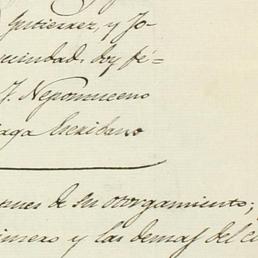 Gutierrez, y Jo-
vecindad. doy fé-
J. Nepomuceno
aga Escribano
ques de su otorgamiento;
imero y las demas del c